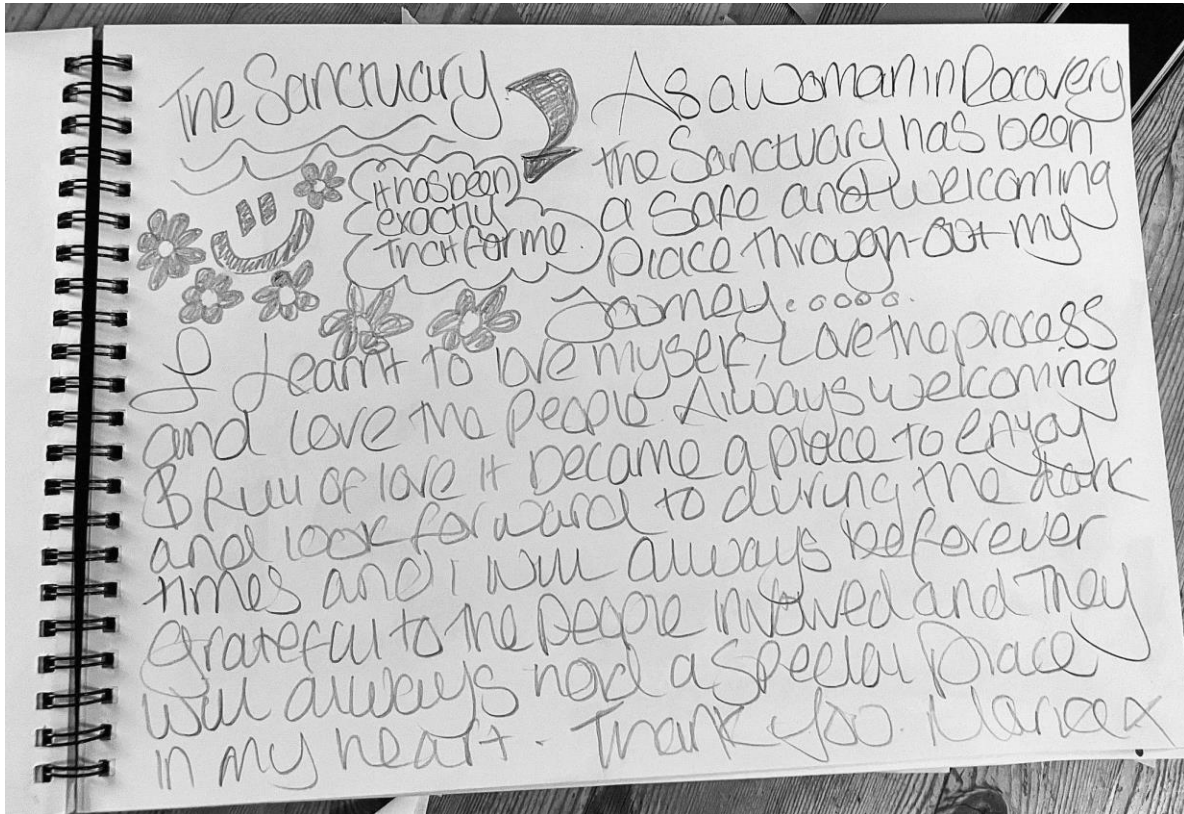 The Sanctuary.
it has been
exactly
that for me.
As a woman in Recovery
the Sanctuary has been
a safe and welcoming
place through-out my
Journey........
I Learnt to love myself, Love the process
and love the people. Always welcoming
& Full of love it became a place to enjoy
and look forward to during the dark
times and i will always be forever
grateful to the people involved and They
will always hold a special place
in my heart. Thank you.